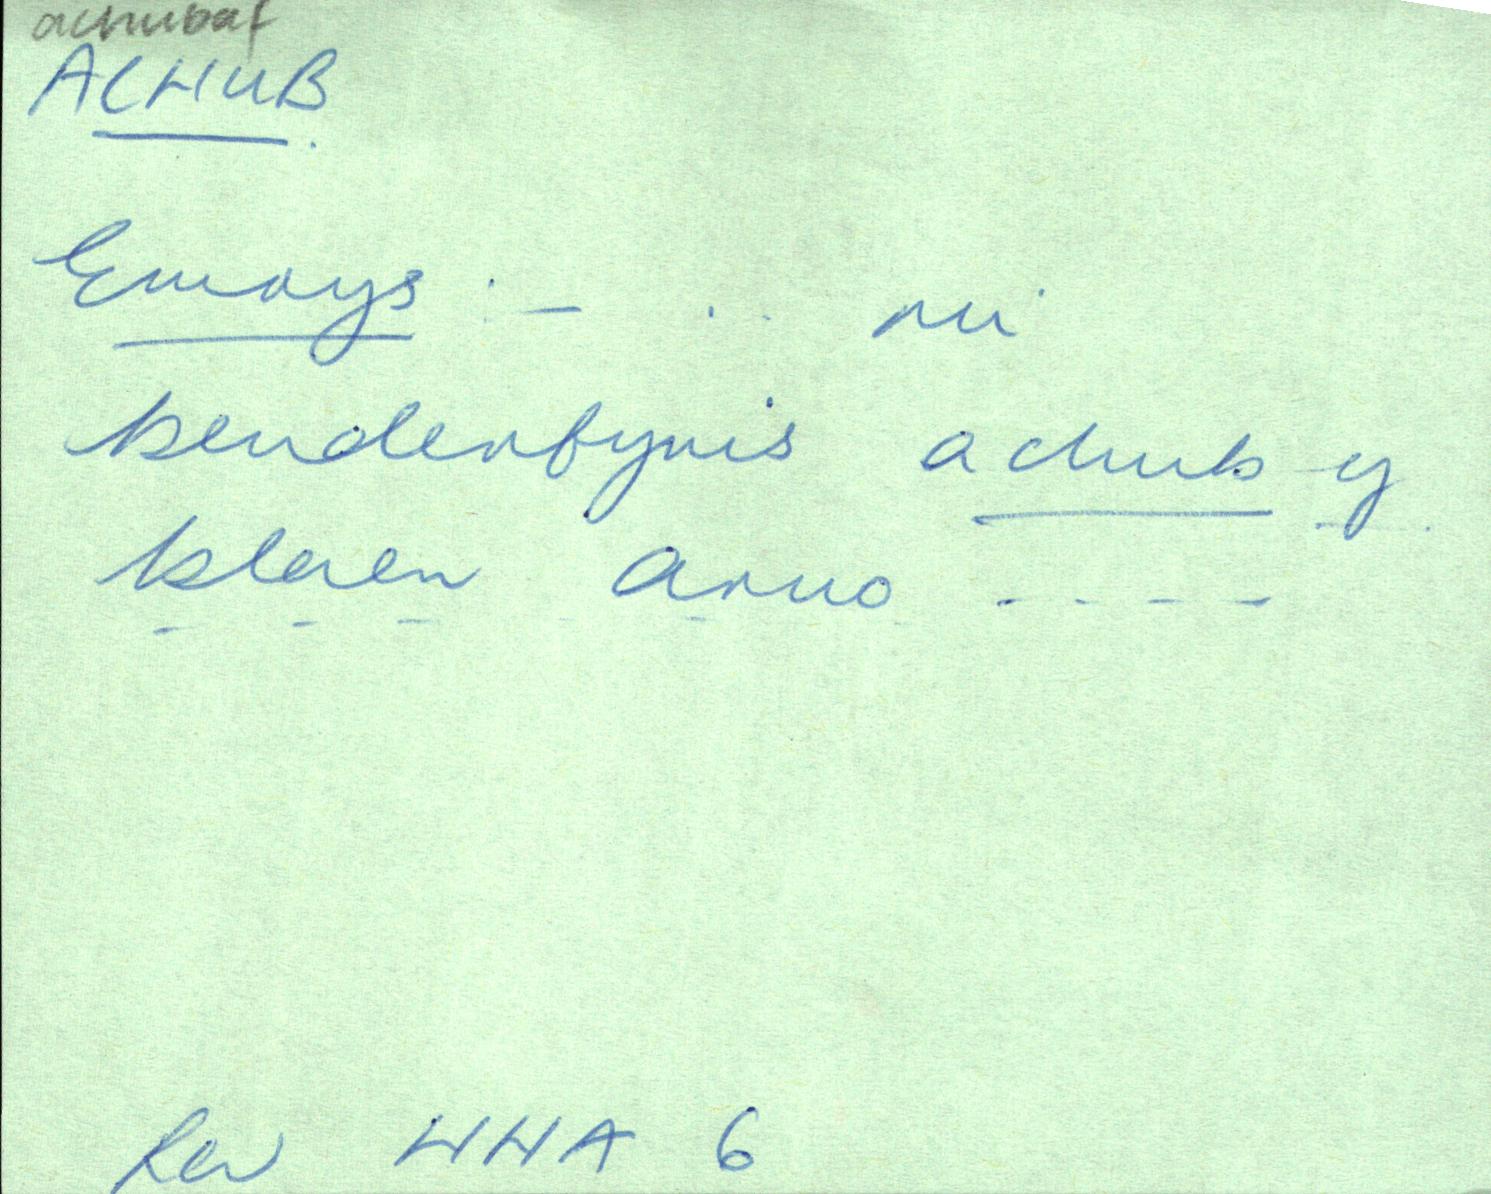 achubaf
ACHUB
Emrys :- .. ni
benderfynis achub y
blaen arno ----
Rev WHA 6